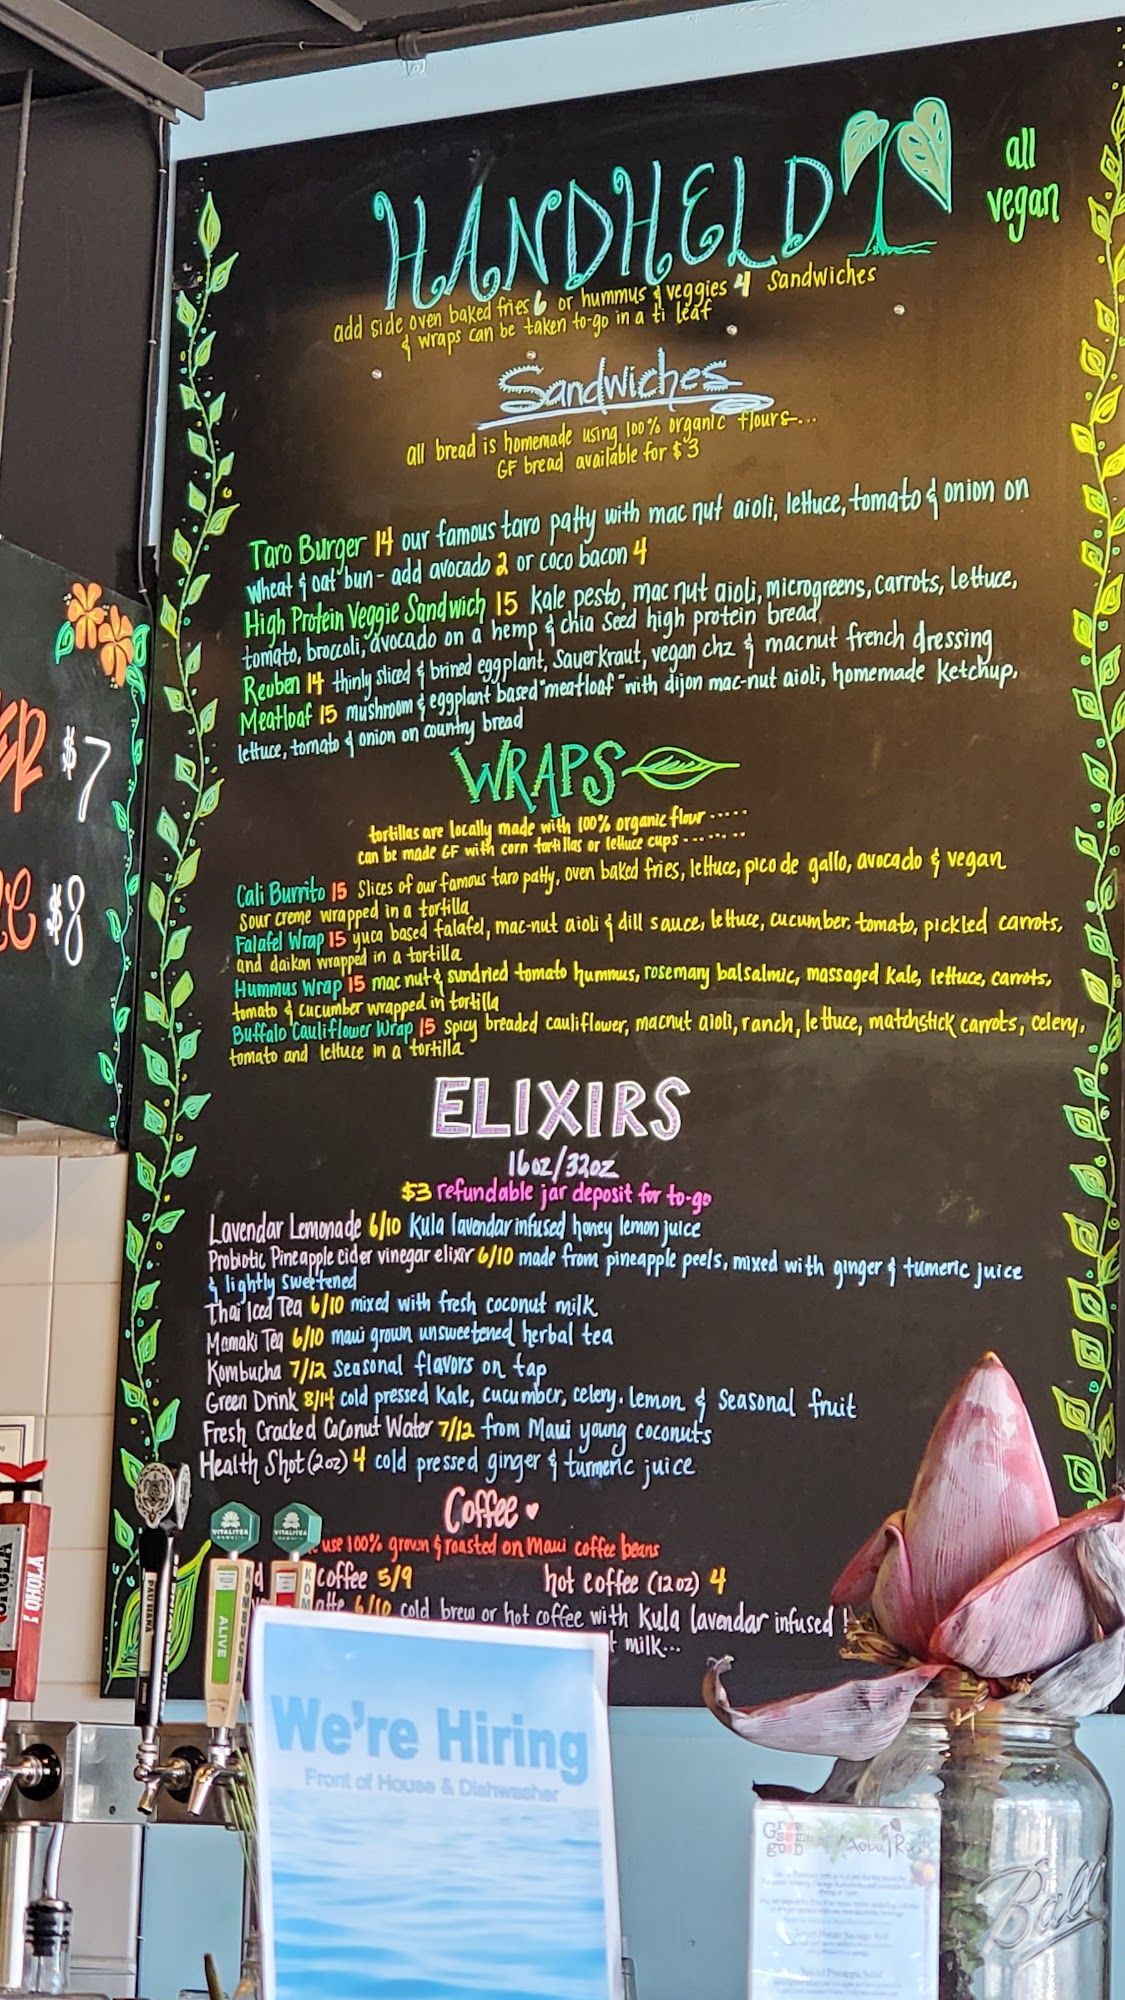 HANDHELD
all
vegan
add side oven baked fries 6 or hummus & veggies 4 Sandwiches
& wraps can be taken to-go in a ti leaf
Sandwiches
all bread is homemade using 100% organic flours...
GF bread available for $3
Taro Burger 14 our famous taro patty with mac nut aioli, lettuce, tomato & onion on
wheat & oat bun - add avocado 2 or coco bacon 4
High Protein Veggie Sandwich 15 kale pesto, mac nut aioli, microgreens, carrots, lettuce,
tomato, broccoli, avocado on a hemp & chia seed high protein bread
Reuben 14 thinly sliced & brined eggplant, Sauerkraut, vegan chz & macnut french dressing
Meatloaf 15 mushroom & eggplant based "meatloaf" with dijon mac-nut aioli, homemade ketchup,
lettuce, tomato & onion on country bread
WRAPS
tortillas are locally made with 100% organic flour .....
can be made GF with corn tortillas or lettuce cups .......
Cali Burrito 15 Slices of our famous taro patty, oven baked fries, lettuce, pico de gallo, avocado & vegan
sour creme wrapped in a tortilla
Falafel Wrap 15 yuca based falafel, mac-nut aioli & dill sauce, lettuce, cucumber, tomato, pickled carrots,
and daikon wrapped in a tortilla
Hummus Wrap 15 mac nut & sundried tomato hummus, rosemary balsalmic, massaged kale, lettuce, carrots,
tomato & cucumber wrapped in tortilla
Buffalo Cauliflower Wrap 15 spicy breaded cauliflower, macnut aioli, ranch, lettuce, matchstick carrots, celery,
tomato and lettuce in a tortilla
ELIXIRS
16oz/32oz
$3 refundable jar deposit for to-go
Lavendar Lemonade 6/10 Kula lavendar infused honey lemon juice
Probiotic Pineapple cider vinegar elixir 6/10 made from pineapple peels, mixed with ginger & tumeric juice
& lightly sweetened
Thai Iced Tea 6/10 mixed with fresh coconut milk
Mamaki Tea 6/10 maui grown unsweetened herbal tea
Kombucha 7/12 seasonal flavors on tap
Green Drink 8/14 cold pressed kale, cucumber, celery, lemon & seasonal fruit
Fresh Cracked Coconut Water 7/12 from Maui young coconuts
Health Shot (2oz) 4 cold pressed ginger & turmeric juice
Coffee
use 100% grown & roasted on Maui coffee beans
coffee 5/9 hot coffee (12oz) 4
6/10 cold brew or hot coffee with Kula lavendar infused
milk...
$7
$8
OHOLA
VITALITEA
VITALITEA
ALIVE
KOMBUCHA
We're Hiring
Front of House & Dishwasher
Grow
some
good
Ball